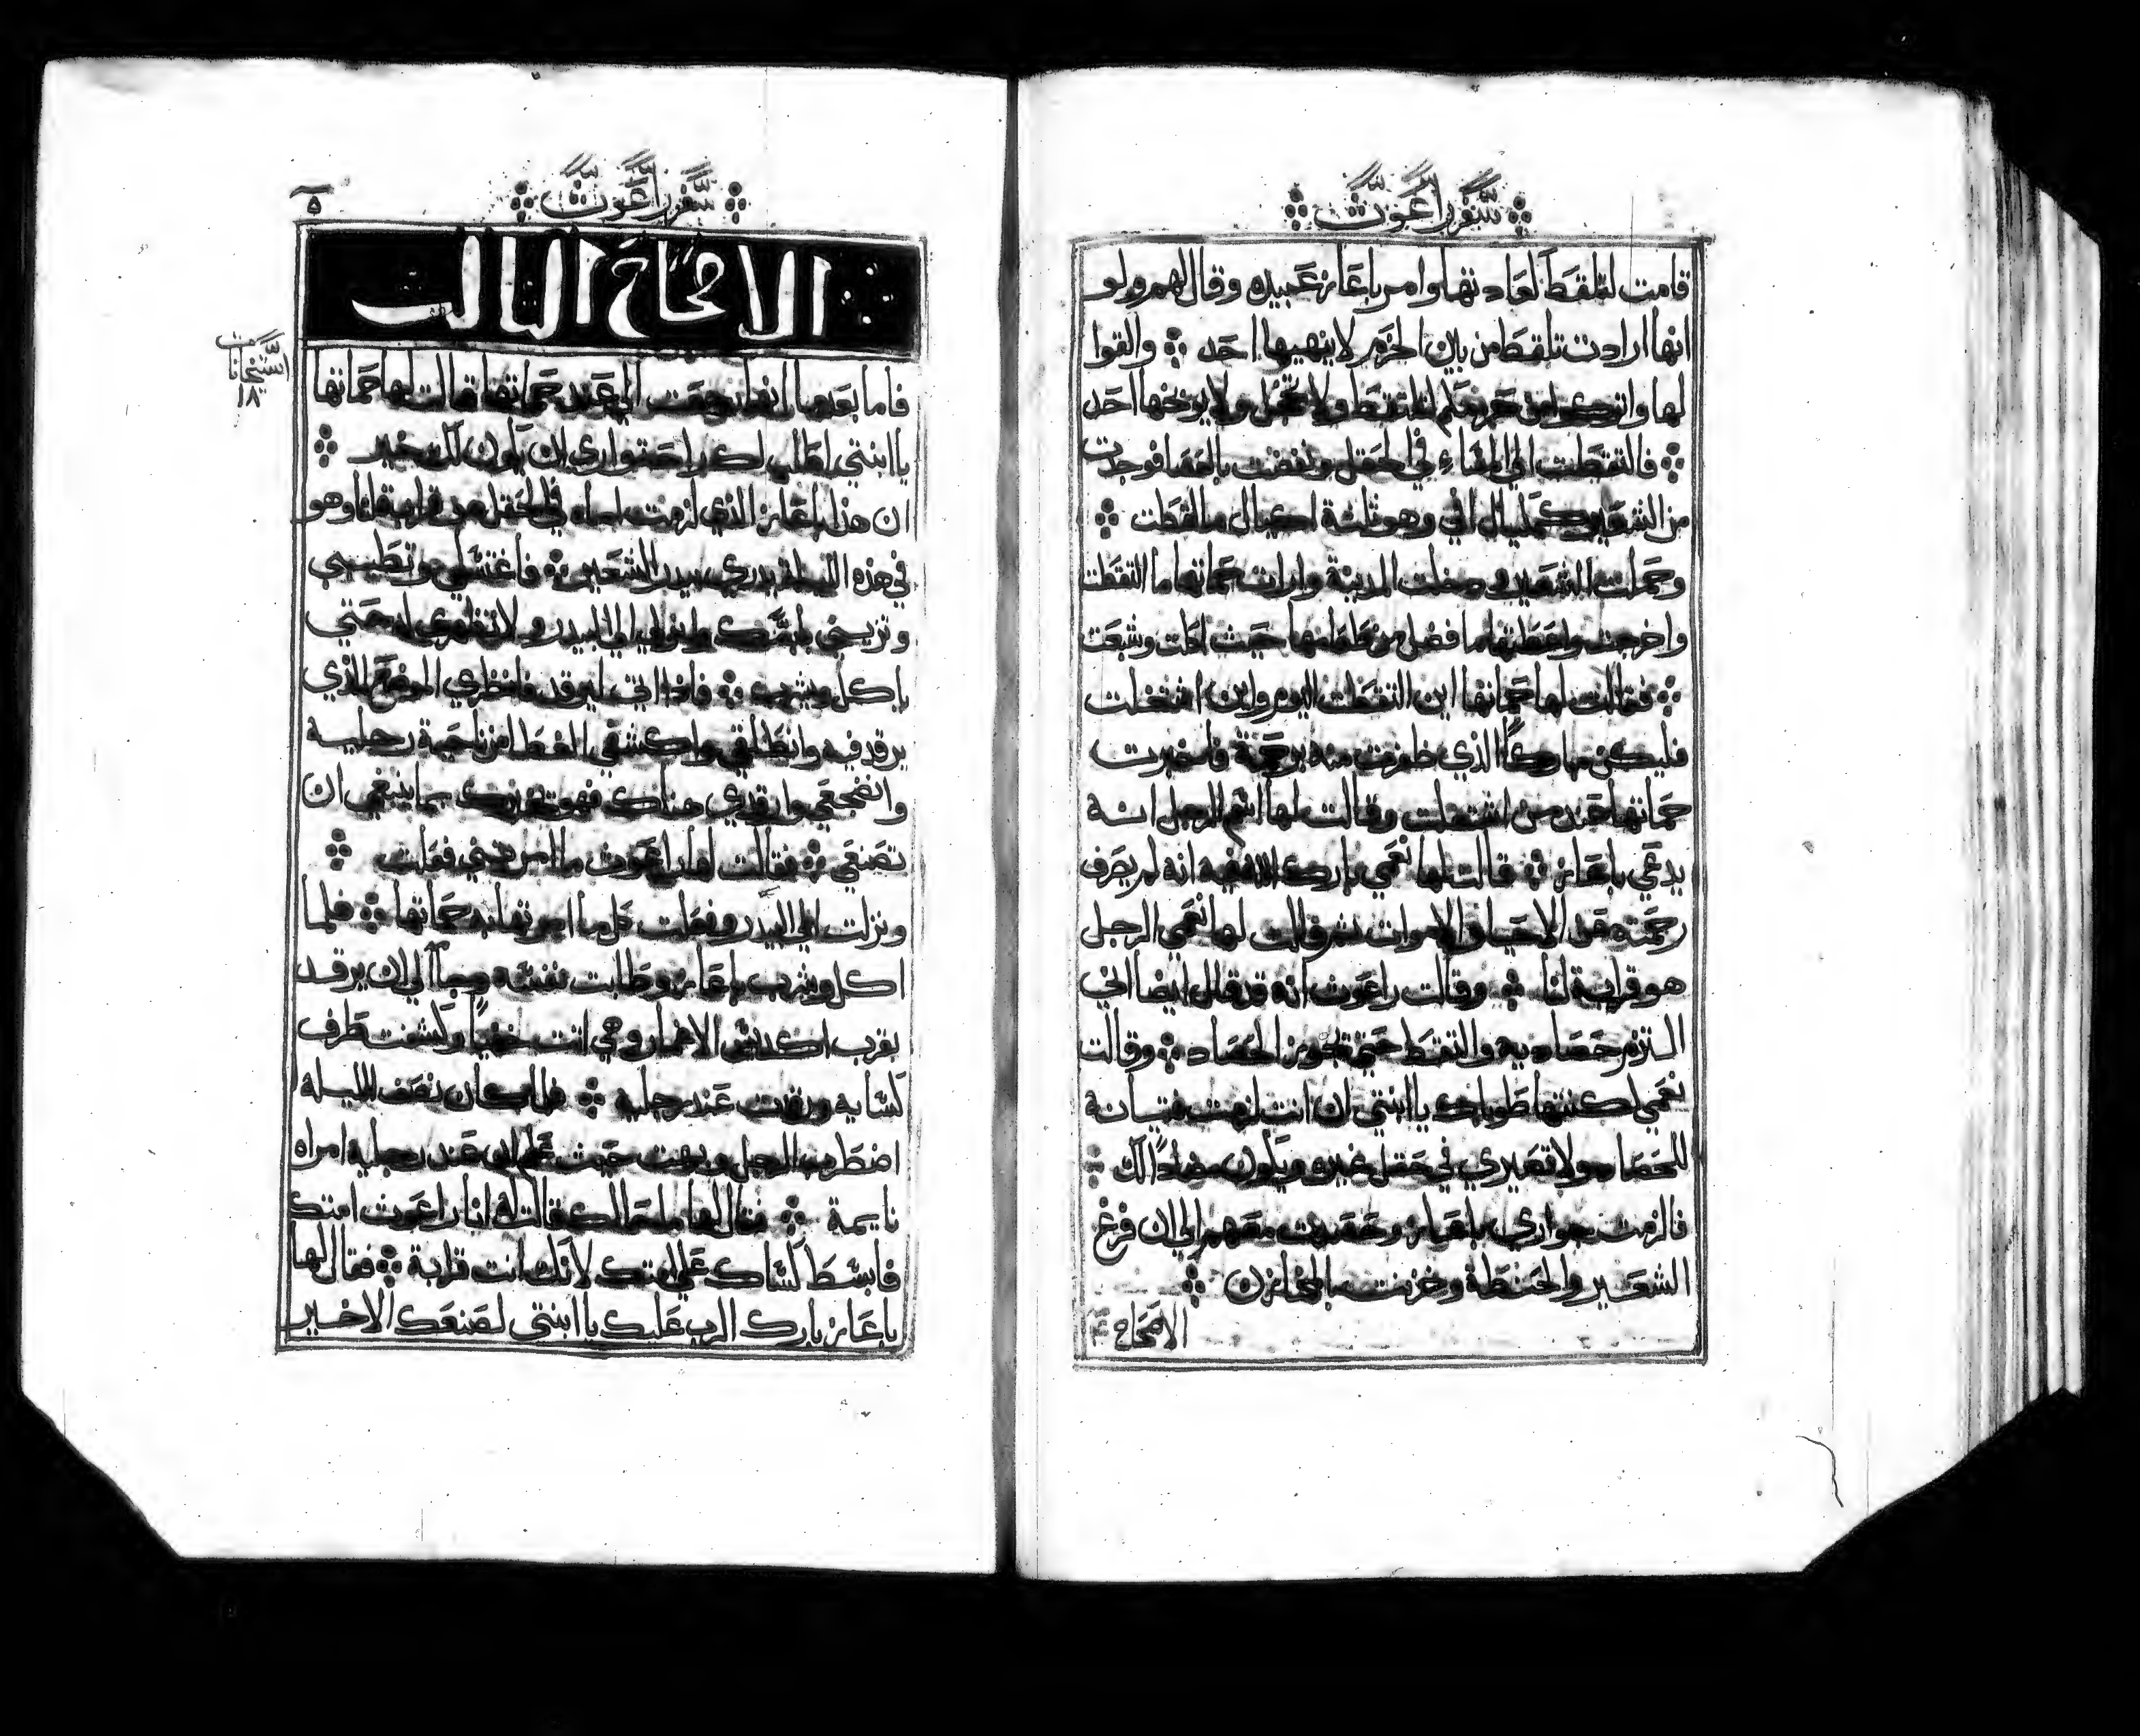 سفر راعوث
قامت لتلقط لعادتها وامر باعاز عبيده وقال لهم ولو
انها ارادت تلقط من بين الحزم لا ينهيها احد والقوا
لها واتركوا من حزمكم لتلتقط ولا تخجل ولا يوبخها احد
فالتقطت الى المساء في الحقل ونفضت بالعصا فوجدت
من الشعير كمكيال افي وهو ثلثة اكيال مالقطت
وحملت الشعير ودخلت المدينة وارات حماتها ما التقطت
واخرجت واعطتها ما فضل من طعامها حيث اكلت وشبعت
فقالت لها حماتها اين التقطت اليوم واين اشتغلت
فليكن مباركاً الذي ظفرت منه برحمة فاخبرت
حماتها عند من اشتغلت وقالت لها اسم الرجل انه
يدعي باعاز قالت لها نعمي بارك الله فيه انه لم يصرف
رحمته عن الاحيا والاموات ثم قالت لها نعمي الرجل
هو قرابة لنا وقالت راعوث انه قد قال ايضا الي
التزم حصاديه والتقط حتى تجوز الحصاد وقالت
نعمي لكنتها طوباك يا ابنتي ان انت لزمت فتيانه
للحصاد ولا تصيري في حقل غيره ويكون مضاداً لك
فالزمت جواري باعاز وحصدت معهم الى ان فرغ
الشعير والحنطة وخزنت بالمخازن
الاصحاح
سفر راعوث
٥
الاصحاح الثالث
استيخانات
١٨
فاما بعدها انها رجعت الى عند حماتها قالت لها حماتها
يا ابنتي اطلب لك راحة واري ان يكون لك خير
ان هذا باعاز الذي لزمت اماه في الحقل من قرابتنا وهو
في هذه الليلة يدري بيدر الشعير فاغتسلي وتطيبي
وتزيني بلبسك وانزلي الى البيدر ولا تظهري له حتى
ياكل ويشرب فاذا اتى ليرقد فانظري الموضع الذي
يرقد فيه وانطلقي واكشفي الغطا من ناحية رجليه
وانضجعي وارقدي هناك فهو يخبرك بما ينبغي ان
تصنعي فقالت لها راعوث ما امرتيني فعلت
ونزلت الى البيدر وفعلت كل ما امرتها به حماتها فلما
اكل وشرب باعاز وطابت نفسه وجاء الى ان يرقد
بقرب اكداس الاغمار وهي اتت خفياً وكشفت طرف
كسايه ورقدت عند رجليه فلما كان نصف الليلة
اضطرب الرجل وبهت حيث علم ان عند رجليه امراه
نايمة فقال لها ما حالك قالت له انا راعوث امتك
فابسط كساك على امتك لانك انت قرابة فقال لها
باعاز بارك الرب عليك يا ابنتي لصنعك الاخير